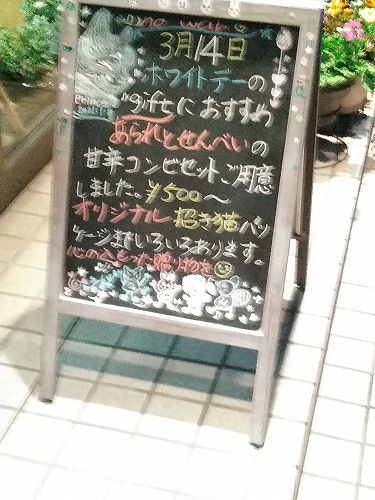 3月14日
ホワイトデーの
"giftにおすすめ
あられとせんべいの
甘辛コンビセットご用意
しました。¥500〜
オリジナル招き猫パッ
ケージまでいろいろあります。
心の込もった贈り物を